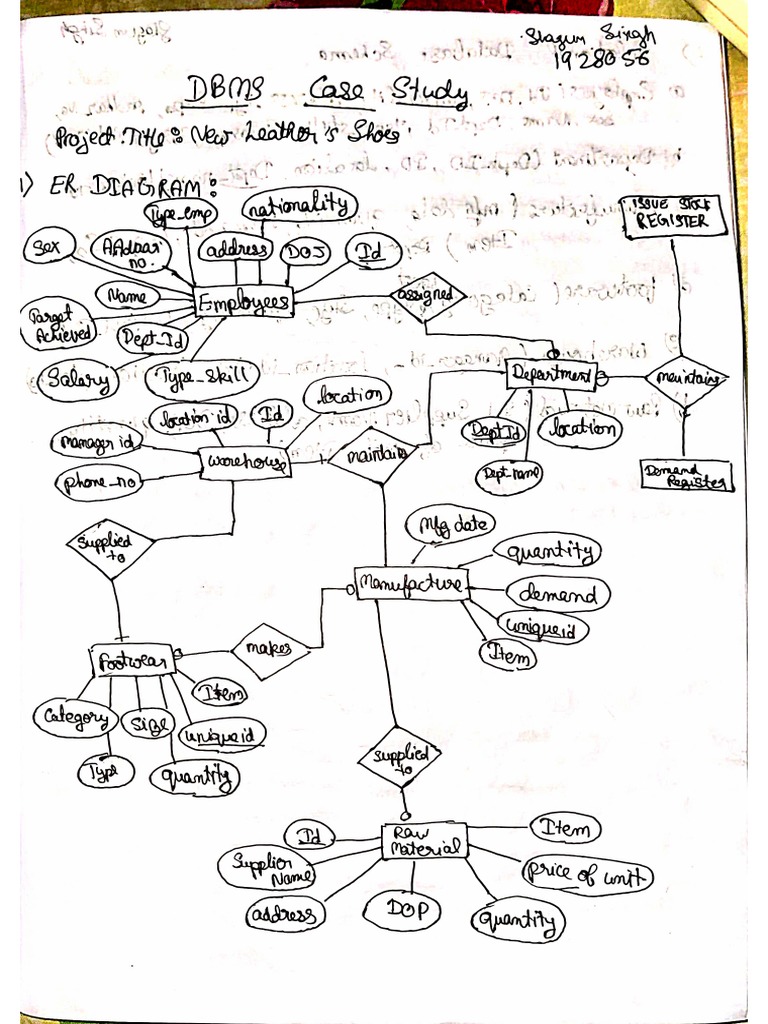 Slagun Singh
1928056
DBMS Case Study
Project Title: New Leather's Shoes
1) ER DIAGRAM:
Type_emp
nationality
ISSUE STOCK
REGISTER
Sex
AAdhaar
no.
address
DOJ
Id
Name
Employees
assigned
Target
Achieved
Dept_Id
Salary
Type_Skill
Department
maintains
location id
Id
location
manager id
Dept Id
location
warehouse
maintains
phone_no
Dept_name
Demand
Register
supplied
to
Mfg date
quantity
Manufacture
demand
unique id
Item
makes
Footwear
Item
Category
Size
unique id
Type
quantity
supplied
to
Id
Raw
Material
Item
Supplier
Name
price of unit
address
DOP
quantity